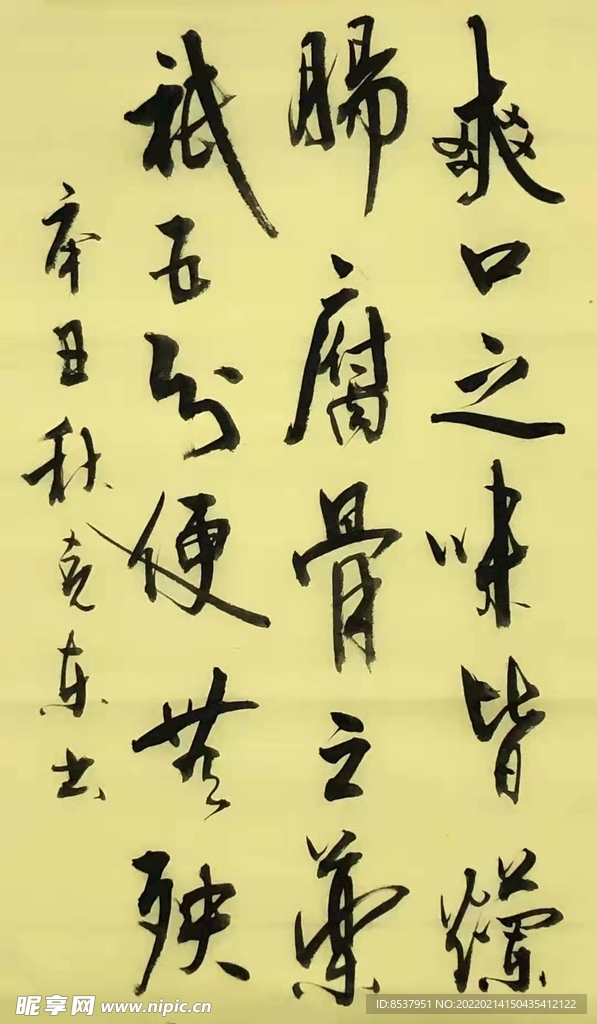 爽口之味皆爛
腸腐骨之藥
祇五分便無殃
辛丑秋克东书
昵享网 www.nipic.cn
ID:8537951 NO:20220214150435412122